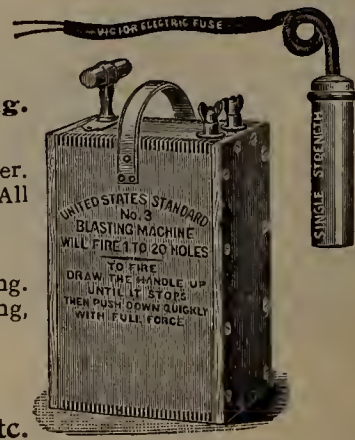 VICTOR ELECTRIC FUSE
SINGLE STRENGTH
g.
er.
All
UNITED STATES STANDARD
No. 3
BLASTING MACHINE
WILL FIRE 1 TO 20 HOLES
TO FIRE
DRAW THE HANDLE UP
UNTIL IT STOPS
THEN PUSH DOWN QUICKLY
WITH FULL FORCE
ng.
ng,
etc.